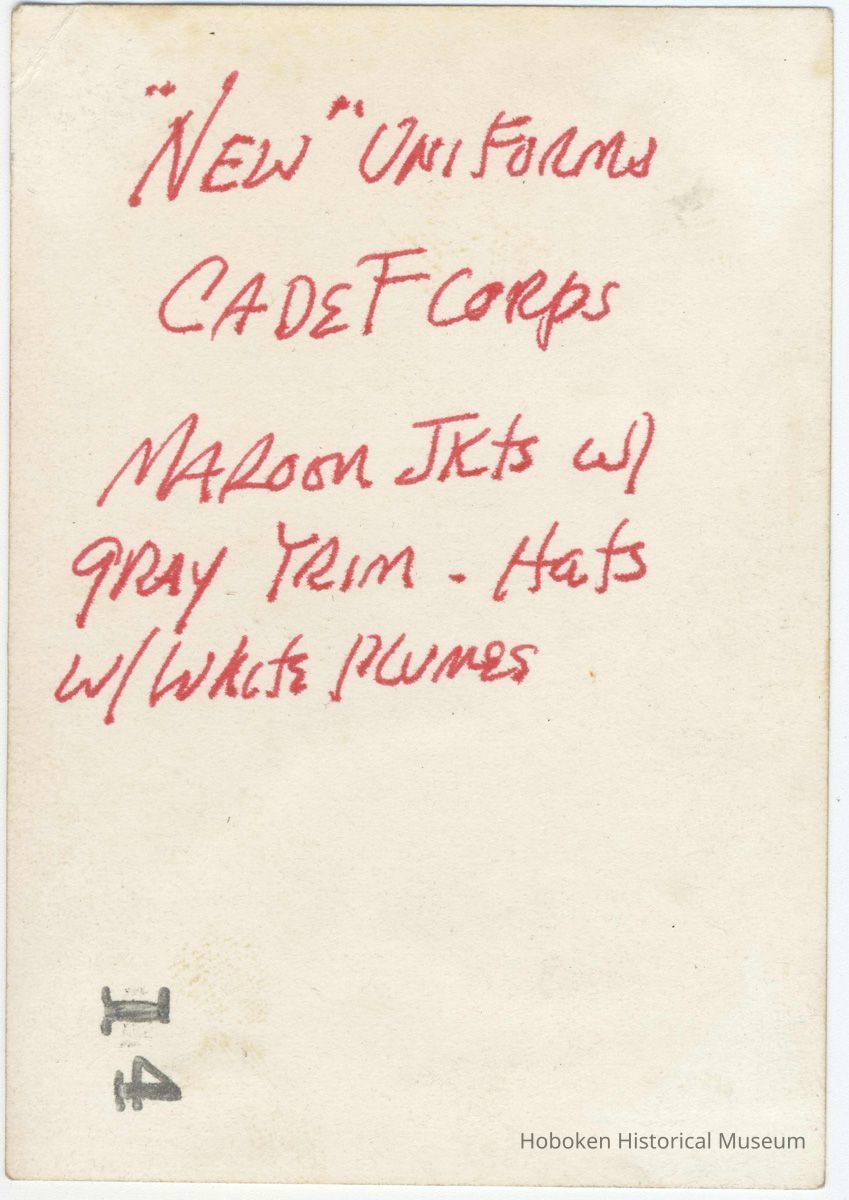 "New" Uniforms
Cadet Corps
Maroon Jkts w/
gray Trim - Hats
w/ White Plumes
I4
Hoboken Historical Museum